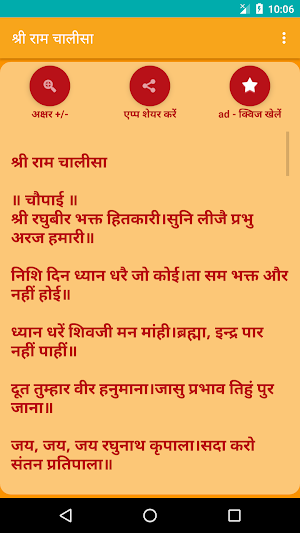 10:06
श्री राम चालीसा
अक्षर +/-
एप्प शेयर करें
ad - क्विज खेलें
श्री राम चालीसा
॥ चौपाई ॥
श्री रघुबीर भक्त हितकारी।सुनि लीजै प्रभु
अरज हमारी॥
निशि दिन ध्यान धरै जो कोई।ता सम भक्त और
नहीं होई॥
ध्यान धरें शिवजी मन मांही।ब्रह्मा, इन्द्र पार
नहीं पाहीं॥
दूत तुम्हार वीर हनुमाना।जासु प्रभाव तिहुं पुर
जाना॥
जय, जय, जय रघुनाथ कृपाला।सदा करो
संतन प्रतिपाला॥